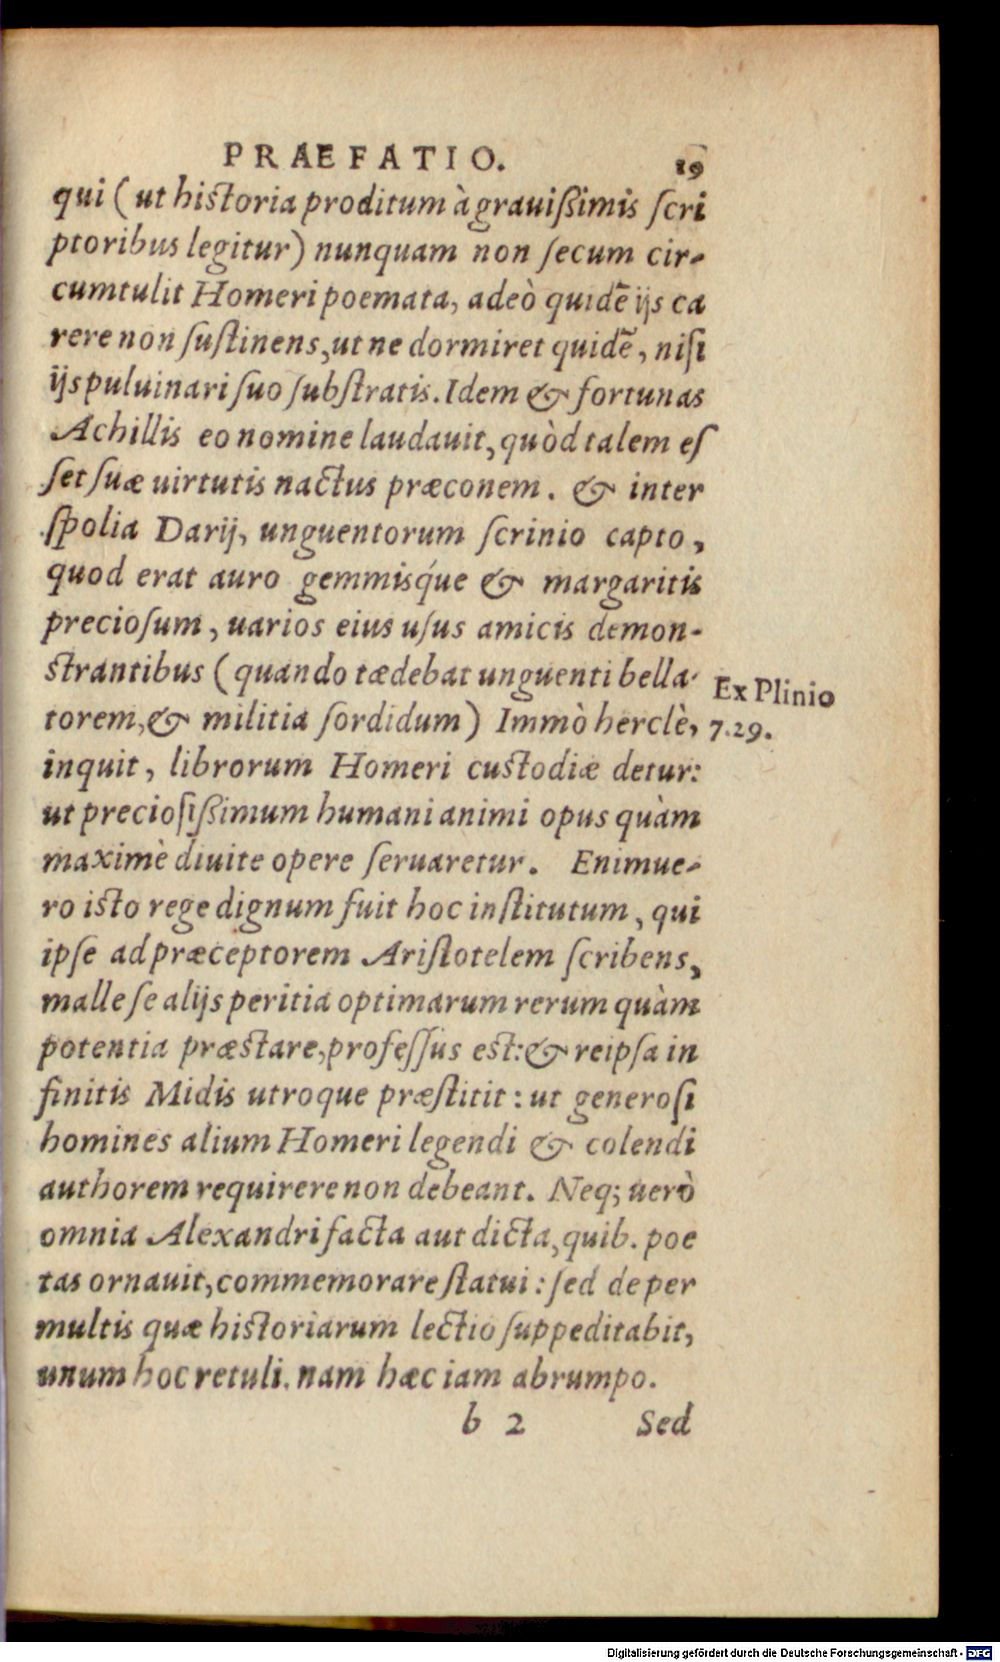 PRAEFATIO. 19
qui (ut historia proditum à grauißimis scri
ptoribus legitur) nunquam non secum cir-
cumtulit Homeri poemata, adeò quidẽ ijs ca
rere non sustinens, ut ne dormiret quidẽ, nisi
ijs puluinari suo substratis. Idem & fortunas
Achillis eo nomine laudauit, quòd talem es
set suæ uirtutis nactus præconem. & inter
spolia Darij, unguentorum scrinio capto,
quod erat auro gemmisq́ue & margaritis
preciosum, uarios eius usus amicis demon-
strantibus (quando tædebat unguenti bella-
torem, & militia sordidum) Immò herclè,
Ex Plinio
7.29.
inquit, librorum Homeri custodiæ detur:
ut preciosißimum humani animi opus quàm
maximè diuite opere seruaretur. Enimue-
ro isto rege dignum fuit hoc institutum, qui
ipse ad præceptorem Aristotelem scribens,
malle se alijs peritia optimarum rerum quàm
potentia præstare, professus est: & reipsa in
finitis Midis utroque præstitit: ut generosi
homines alium Homeri legendi & colendi
authorem requirere non debeant. Neq; uerò
omnia Alexandri facta aut dicta, quib. poe
tas ornauit, commemorare statui: sed de per
multis quæ historiarum lectio suppeditabit,
unum hoc retuli. nam hæc iam abrumpo.
b 2 Sed
Digitalisierung gefördert durch die Deutsche Forschungsgemeinschaft - DFG